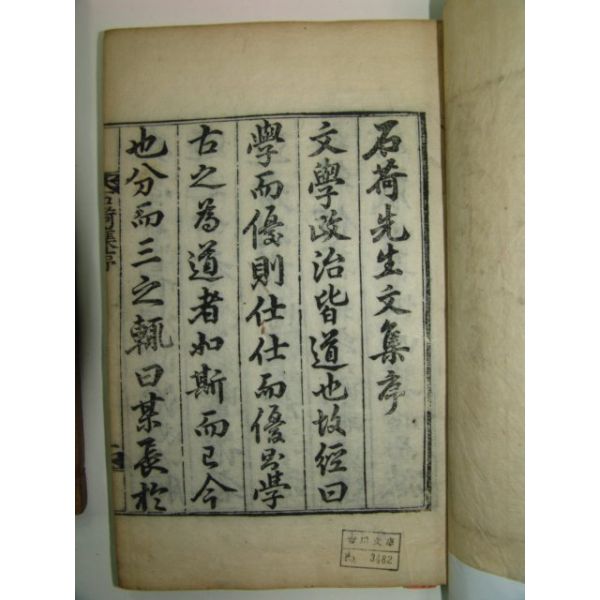 石荷先生文集序
文學政治皆道也故經曰
學而優則仕仕而優則學
古之為道者如斯而已今
也分而三之輒曰某長於
石荷集序
No. 3482